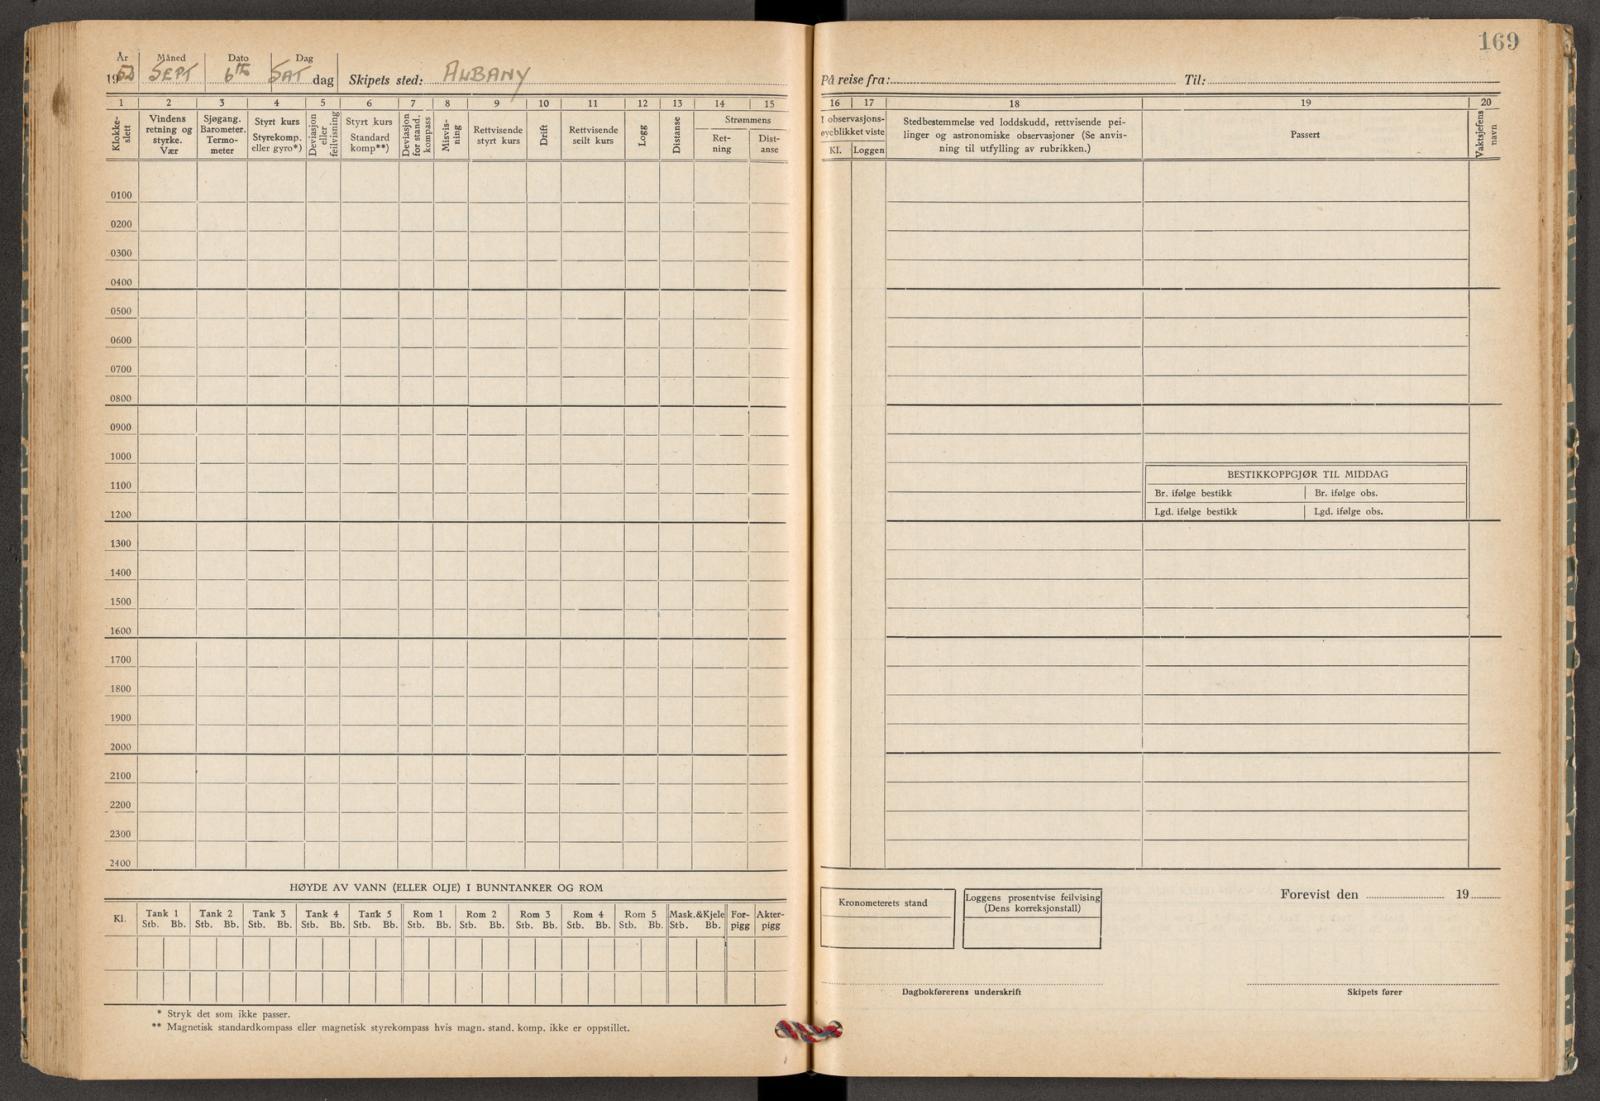 169
År Måned Dato Dag
1952 SEPT 6th SAT dag Skipets sted: ALBANY
På reise fra: Til:
1 2 3 4 5 6 7 8 9 10 11 12 13 14 15
Klokke-slett
Vindens retning og styrke. Vær
Sjøgang. Barometer. Termo-meter
Styrt kurs Styrekomp. eller gyro*)
Deviasjon eller feilvisning
Styrt kurs Standard komp**)
Deviasjon for stand. kompass
Misvis-ning
Rettvisende styrt kurs
Drift
Rettvisende seilt kurs
Logg
Distanse
Strømmens
Ret-ning
Dist-anse
16 17 18 19 20
I observasjons-øyeblikket viste
Kl. Loggen
Stedbestemmelse ved loddskudd, rettvisende pei-
linger og astronomiske observasjoner (Se anvis-
ning til utfylling av rubrikken.)
Passert
Vaktsjefens navn
0100
0200
0300
0400
0500
0600
0700
0800
0900
1000
1100
1200
1300
1400
1500
1600
1700
1800
1900
2000
2100
2200
2300
2400
BESTIKKOPPGJØR TIL MIDDAG
Br. ifølge bestikk Br. ifølge obs.
Lgd. ifølge bestikk Lgd. ifølge obs.
HØYDE AV VANN (ELLER OLJE) I BUNNTANKER OG ROM
Kl. Tank 1 Tank 2 Tank 3 Tank 4 Tank 5 Rom 1 Rom 2 Rom 3 Rom 4 Rom 5 Mask.&Kjele For-pigg Akter-pigg
Stb. Bb. Stb. Bb. Stb. Bb. Stb. Bb. Stb. Bb. Stb. Bb. Stb. Bb. Stb. Bb. Stb. Bb. Stb. Bb. Stb. Bb.
* Stryk det som ikke passer.
** Magnetisk standardkompass eller magnetisk styrekompass hvis magn. stand. komp. ikke er oppstillet.
Kronometerets stand
Loggens prosentvise feilvising
(Dens korreksjonstall)
Forevist den 19
Dagbokførerens underskrift
Skipets fører